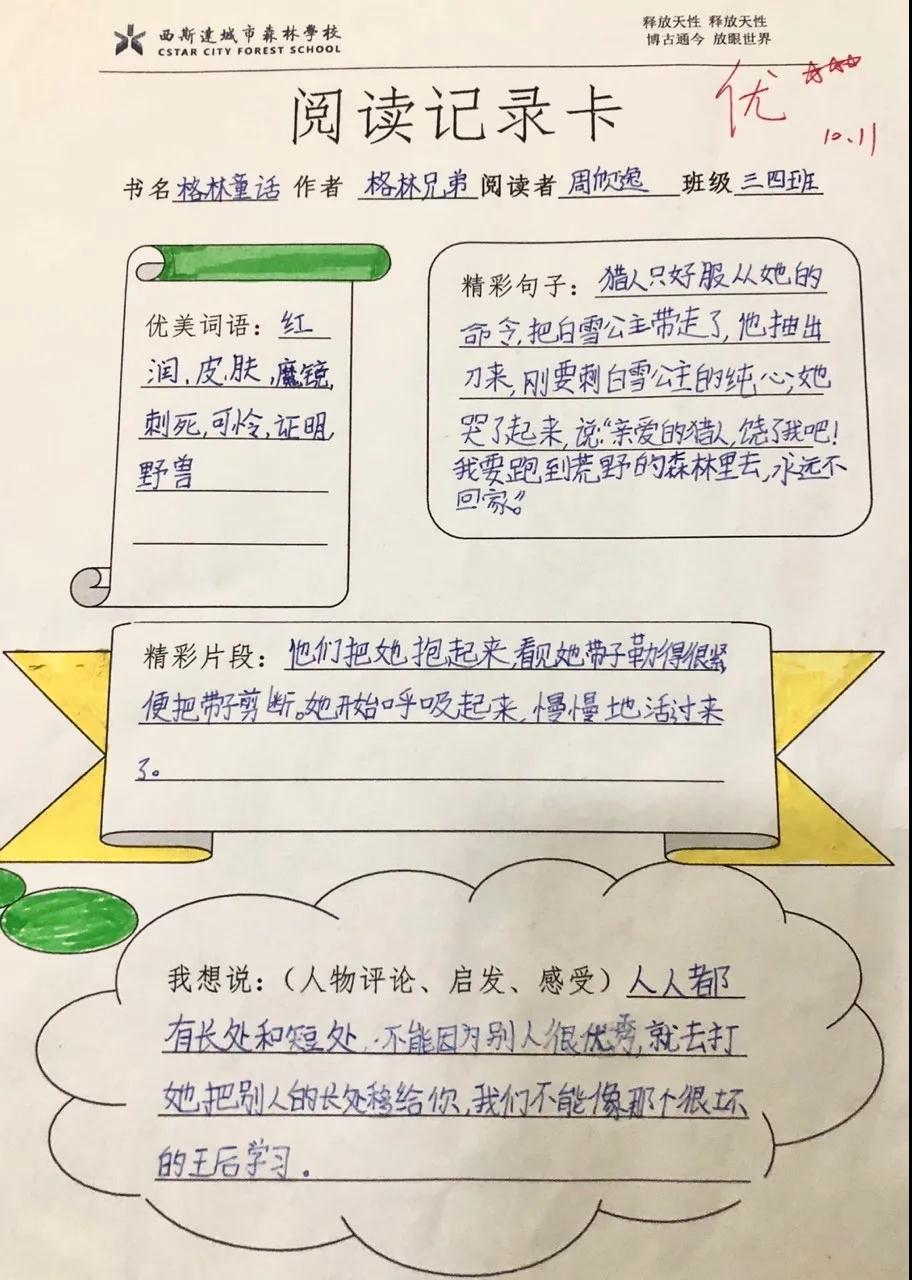 西斯达城市森林学校
CSTAR CITY FOREST SCHOOL
释放天性 释放天性
博古通今 放眼世界
优
10.11
阅读记录卡
书名 格林童话 作者 格林兄弟 阅读者 周欣逸 班级 三四班
优美词语：红
润,皮肤,魔镜,
刺死,可怜,证明,
野兽
精彩句子：猎人只好服从她的
命令,把白雪公主带走了,他抽出
刀来,刚要刺白雪公主的纯心,她
哭了起来,说:“亲爱的猎人,饶了我吧!
我要跑到荒野的森林里去,永远不
回家。”
精彩片段：他们把她抱起来,看见她带子勒得很紧
便把带子剪断。她开始呼吸起来,慢慢地活过来
了。
我想说：（人物评论、启发、感受）人人都
有长处和短处,不能因为别人很优秀,就去打
她把别人的长处移给你,我们不能像那个很坏
的王后学习.